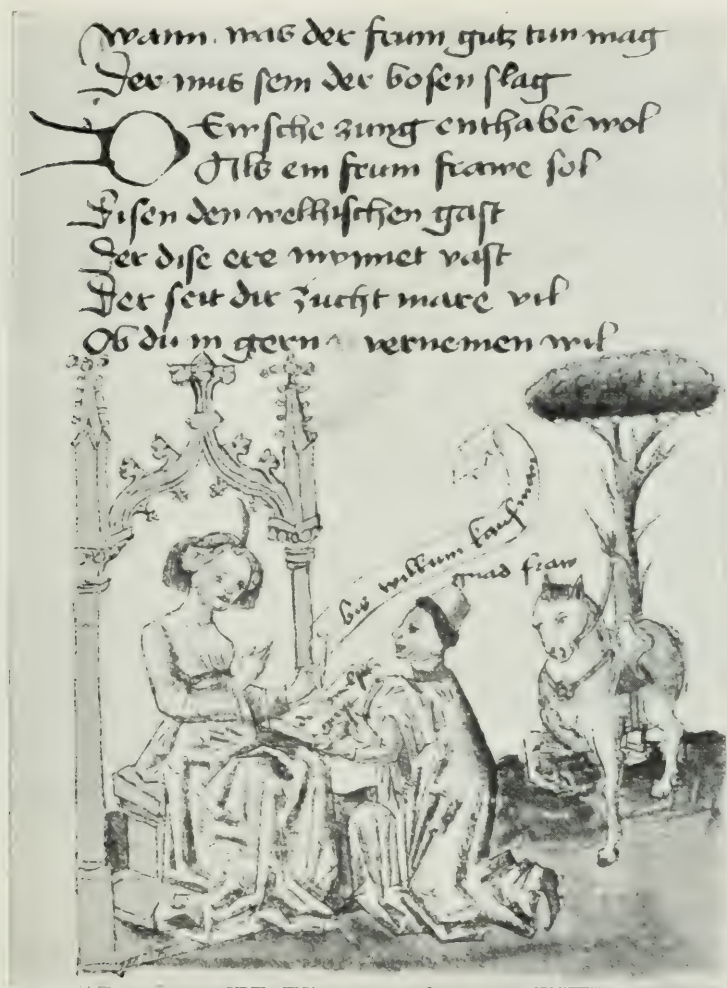 Wann was der frum gutz tun mag
Der mus sein der bosen slag
Ewsche zung enthabē wol
Als ein frum frawe sol
disen den welhischen gast
Der dise ere mynnet vast
Der seit dir zucht mare vil
Ob du in gern vernemen wil
bis wilkum kaufman
gnad fraw